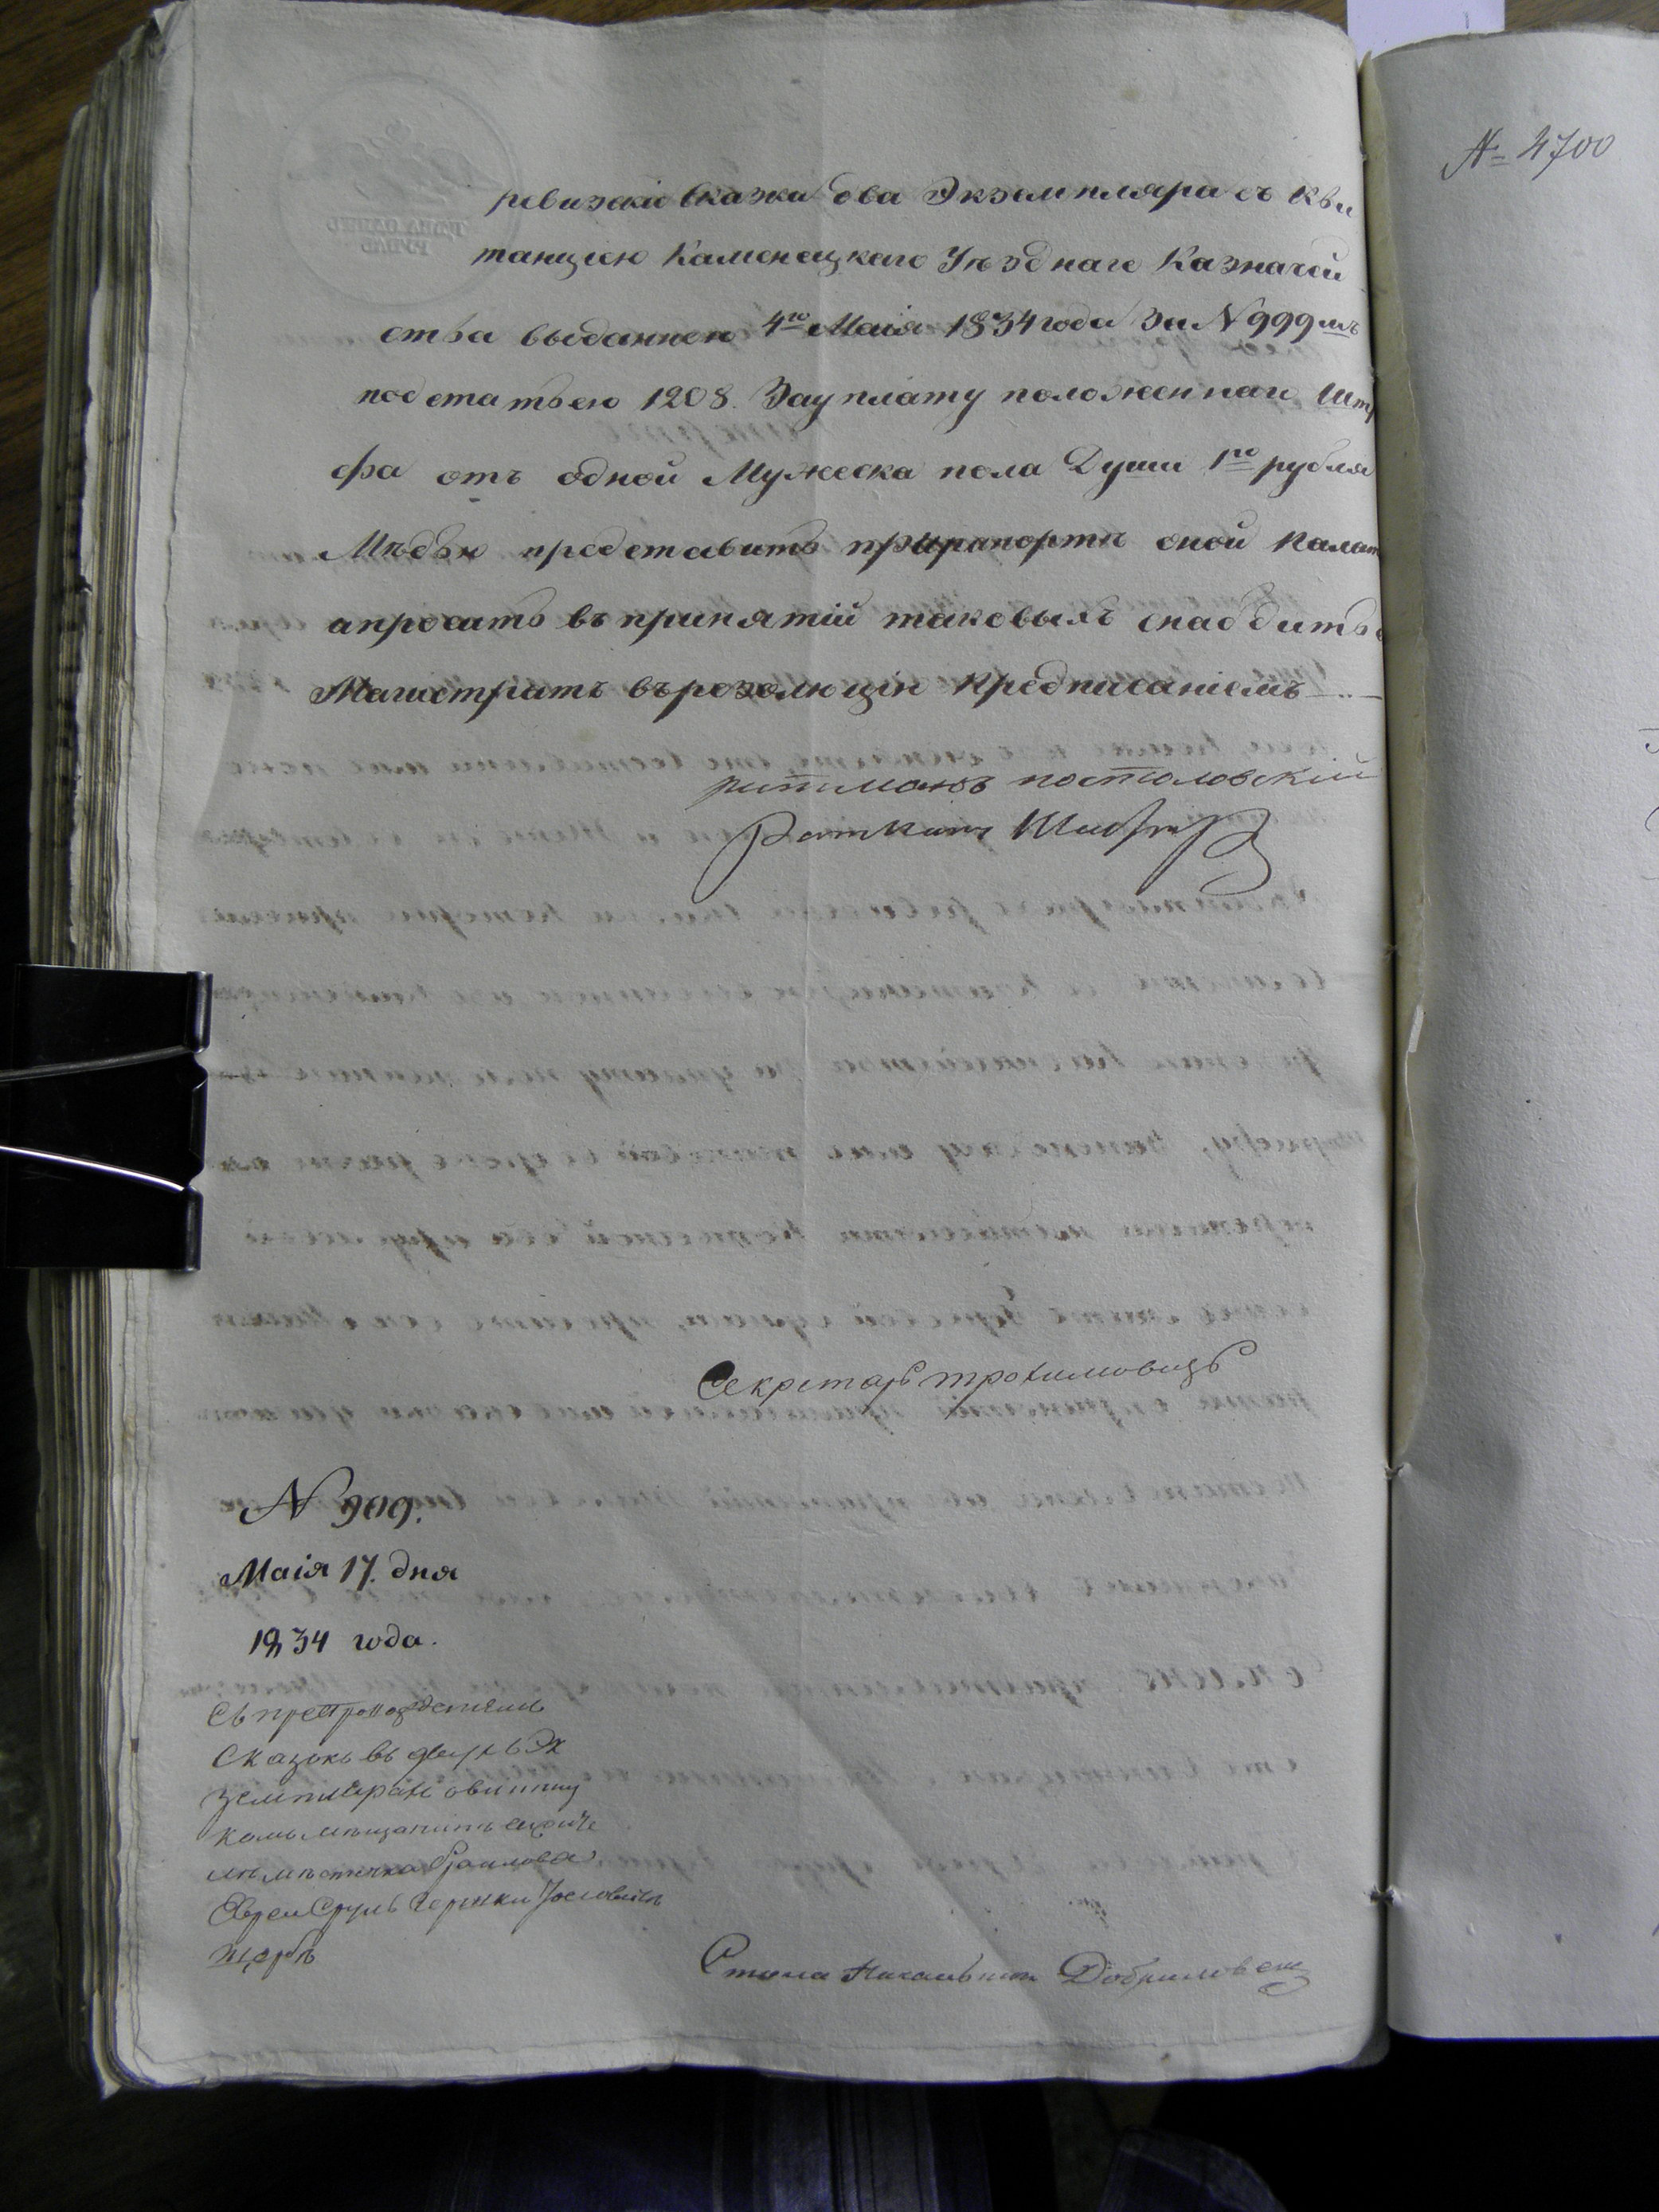 № 4700
ревизскіе скажи два Экземпляра съ Кви
танціею Каменецкаго Уѣзднаго Казначей
ства выданною 4го Маія 1834 года за N 999мъ
подстатьею 1208. Зауплату положеннаго Штр
фа отъ одной Мужеска пола Души 1го рубля
Мѣдью представить прирапортѣ оной Палат
апросить въ принятій таковыхъ снабдить
Магистратъ въ резолюцію Предписаніемъ
ратманъ постоловскій
Ратманъ
Секретарь трохимовичь
N 909.
Маія 17. дня
1834 года.
Съ препровожденіемъ
Сказокъ въ двухъ Эк
земплярахъ о
мѣстечка Браилова
Евреи Сруль Иосіовичъ
Стола Начальникъ